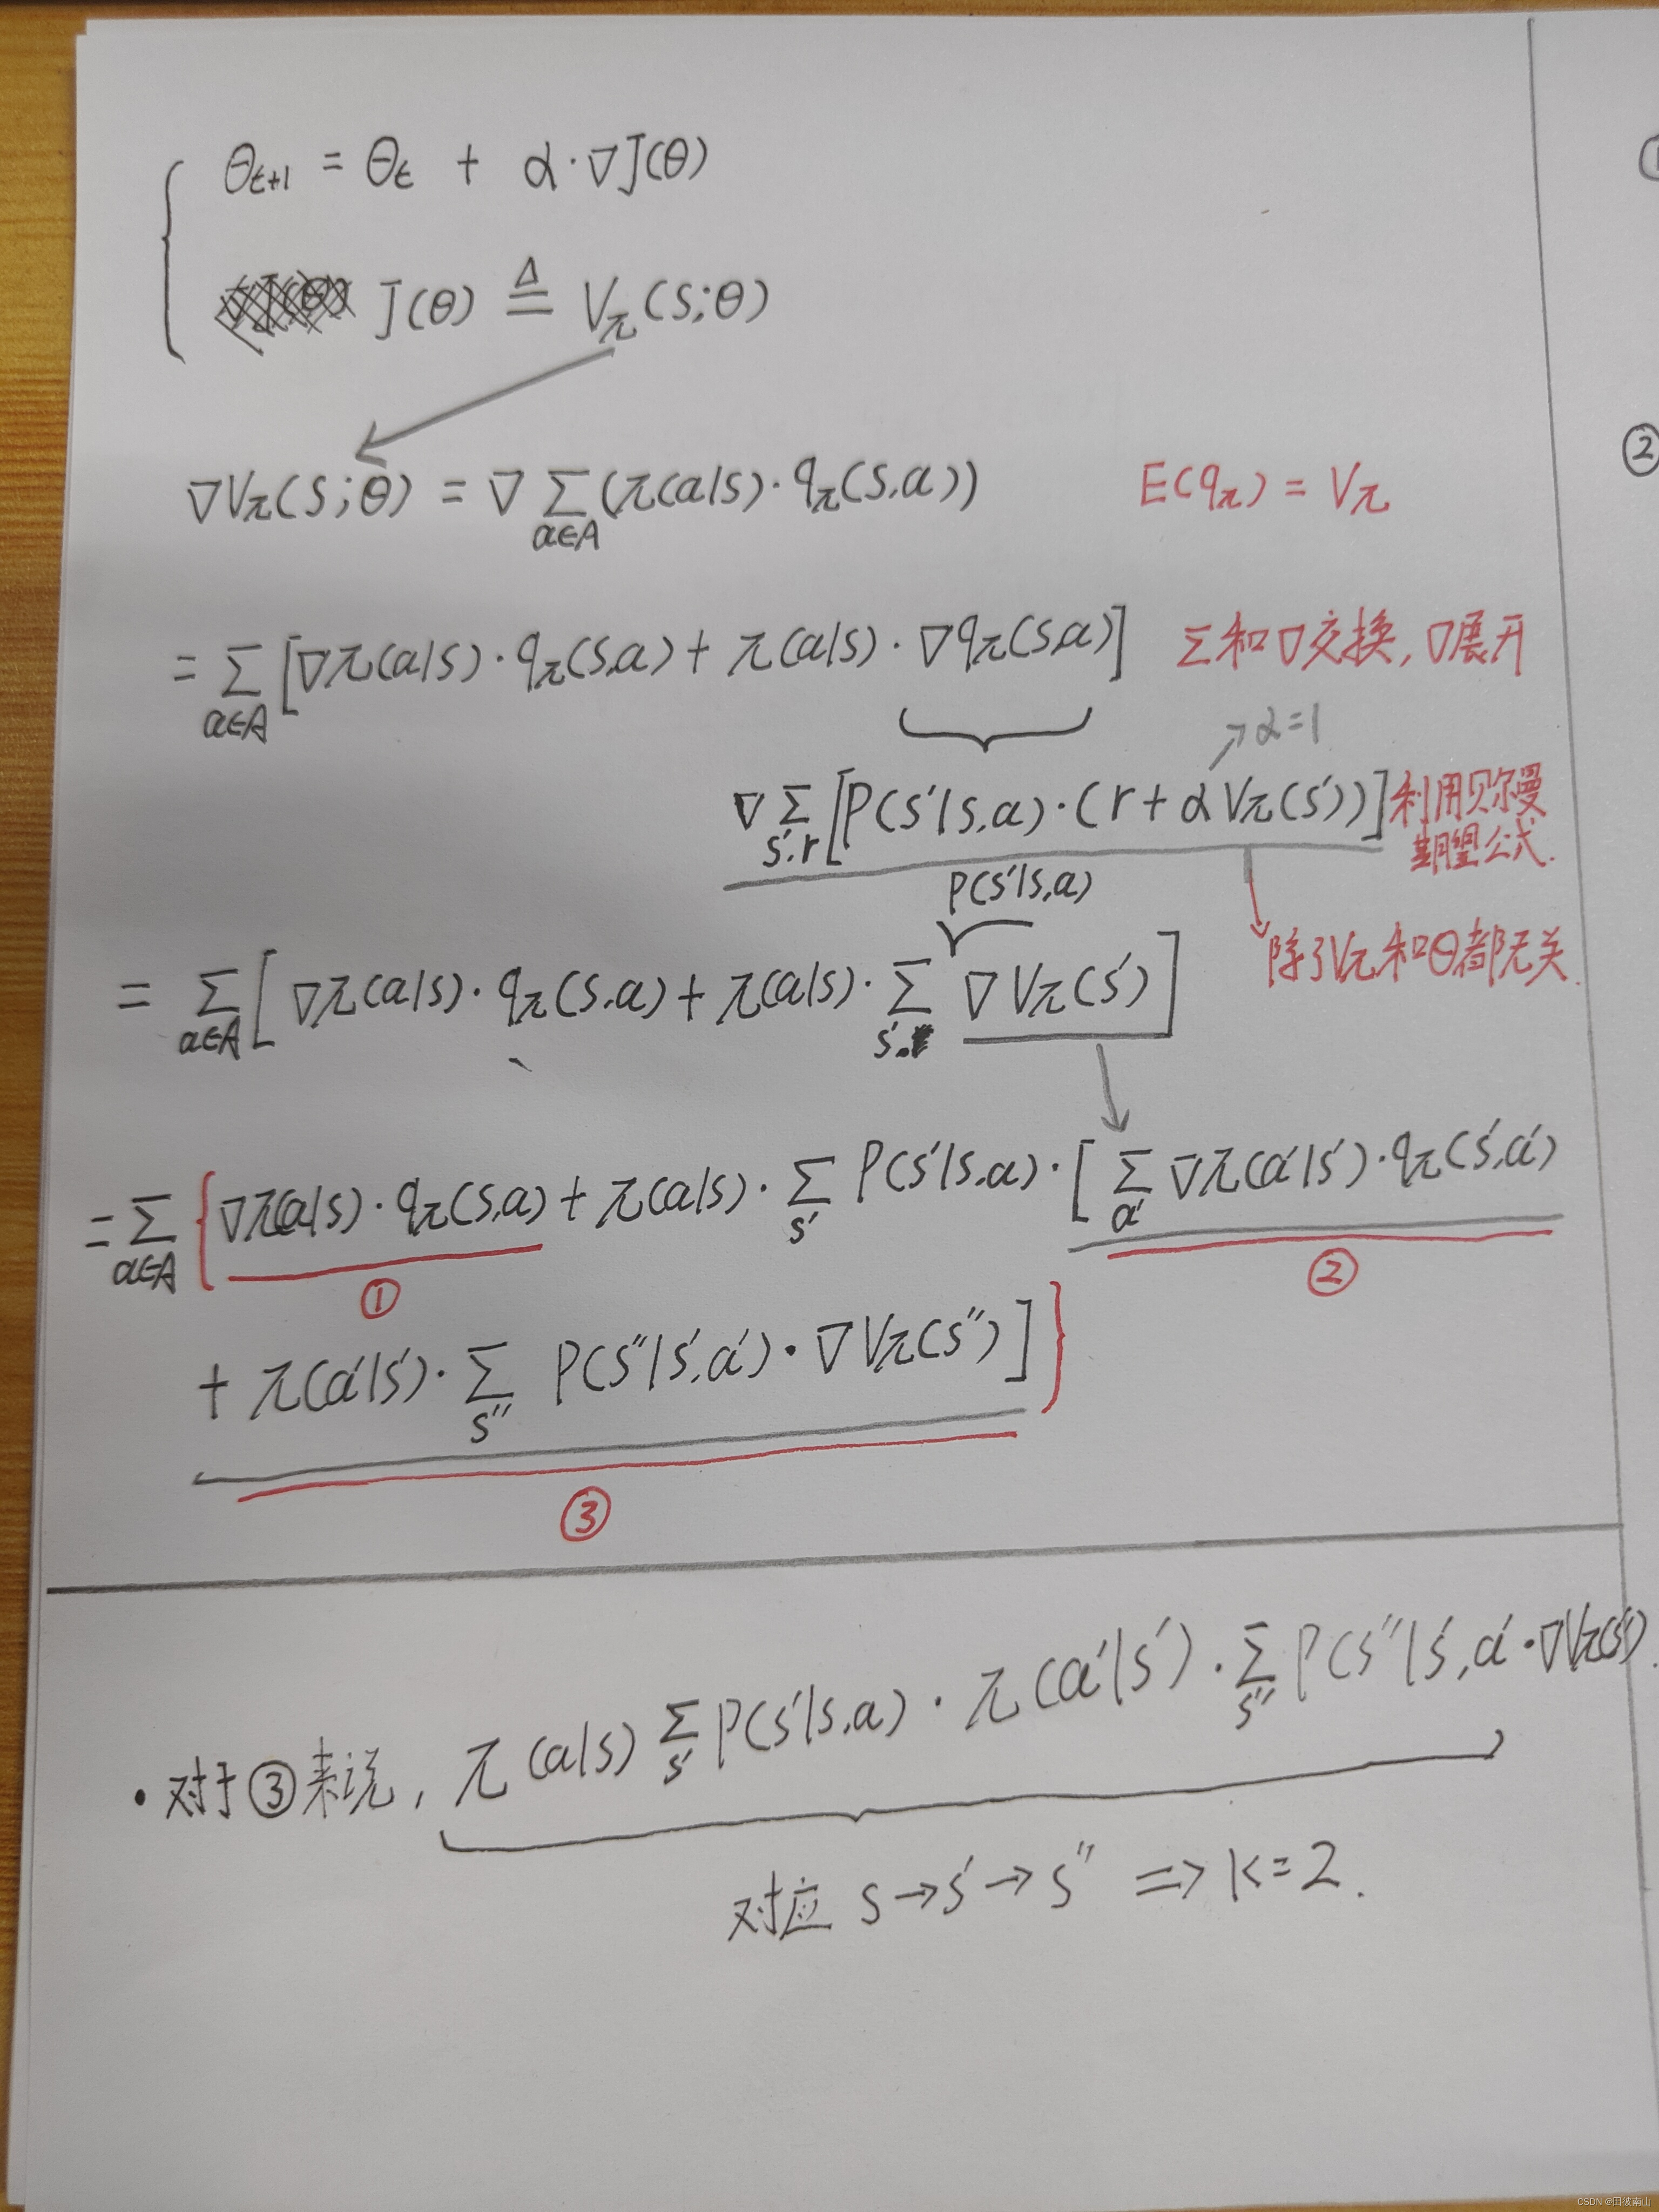 θₜ₊₁ = θₜ + α·∇J(θ)
J(θ) ≜ Vπ(s;θ)
∇Vπ(s;θ) = ∇ Σ_{a∈A} (π(a|s)·qπ(s,a)) E(qπ) = Vπ
= Σ_{a∈A} [∇π(a|s)·qπ(s,a) + π(a|s)·∇qπ(s,a)] Σ和∇交换,∇展开
↗α=1
∇ Σ_{s',r} [P(s'|s,a)·(r+αVπ(s'))] 利用贝尔曼
期望公式.
P(s'|s,a)
除了Vπ和θ都无关.
= Σ_{a∈A} [∇π(a|s)·qπ(s,a) + π(a|s)·Σ_{s'} ∇Vπ(s')]
= Σ_{a∈A} {∇π(a|s)·qπ(s,a) + π(a|s)·Σ_{s'} P(s'|s,a)·[Σ_{a'} ∇π(a'|s')·qπ(s',a')
① ②
+ π(a'|s')·Σ_{s''} P(s''|s',a')·∇Vπ(s'')]}
③
·对于③来说, π(a|s) Σ_{s'} P(s'|s,a)·π(a'|s')·Σ_{s''} P(s''|s',a'·∇Vπ(s'').
对应 s→s'→s'' => k=2.
②
CSDN @田彼南山